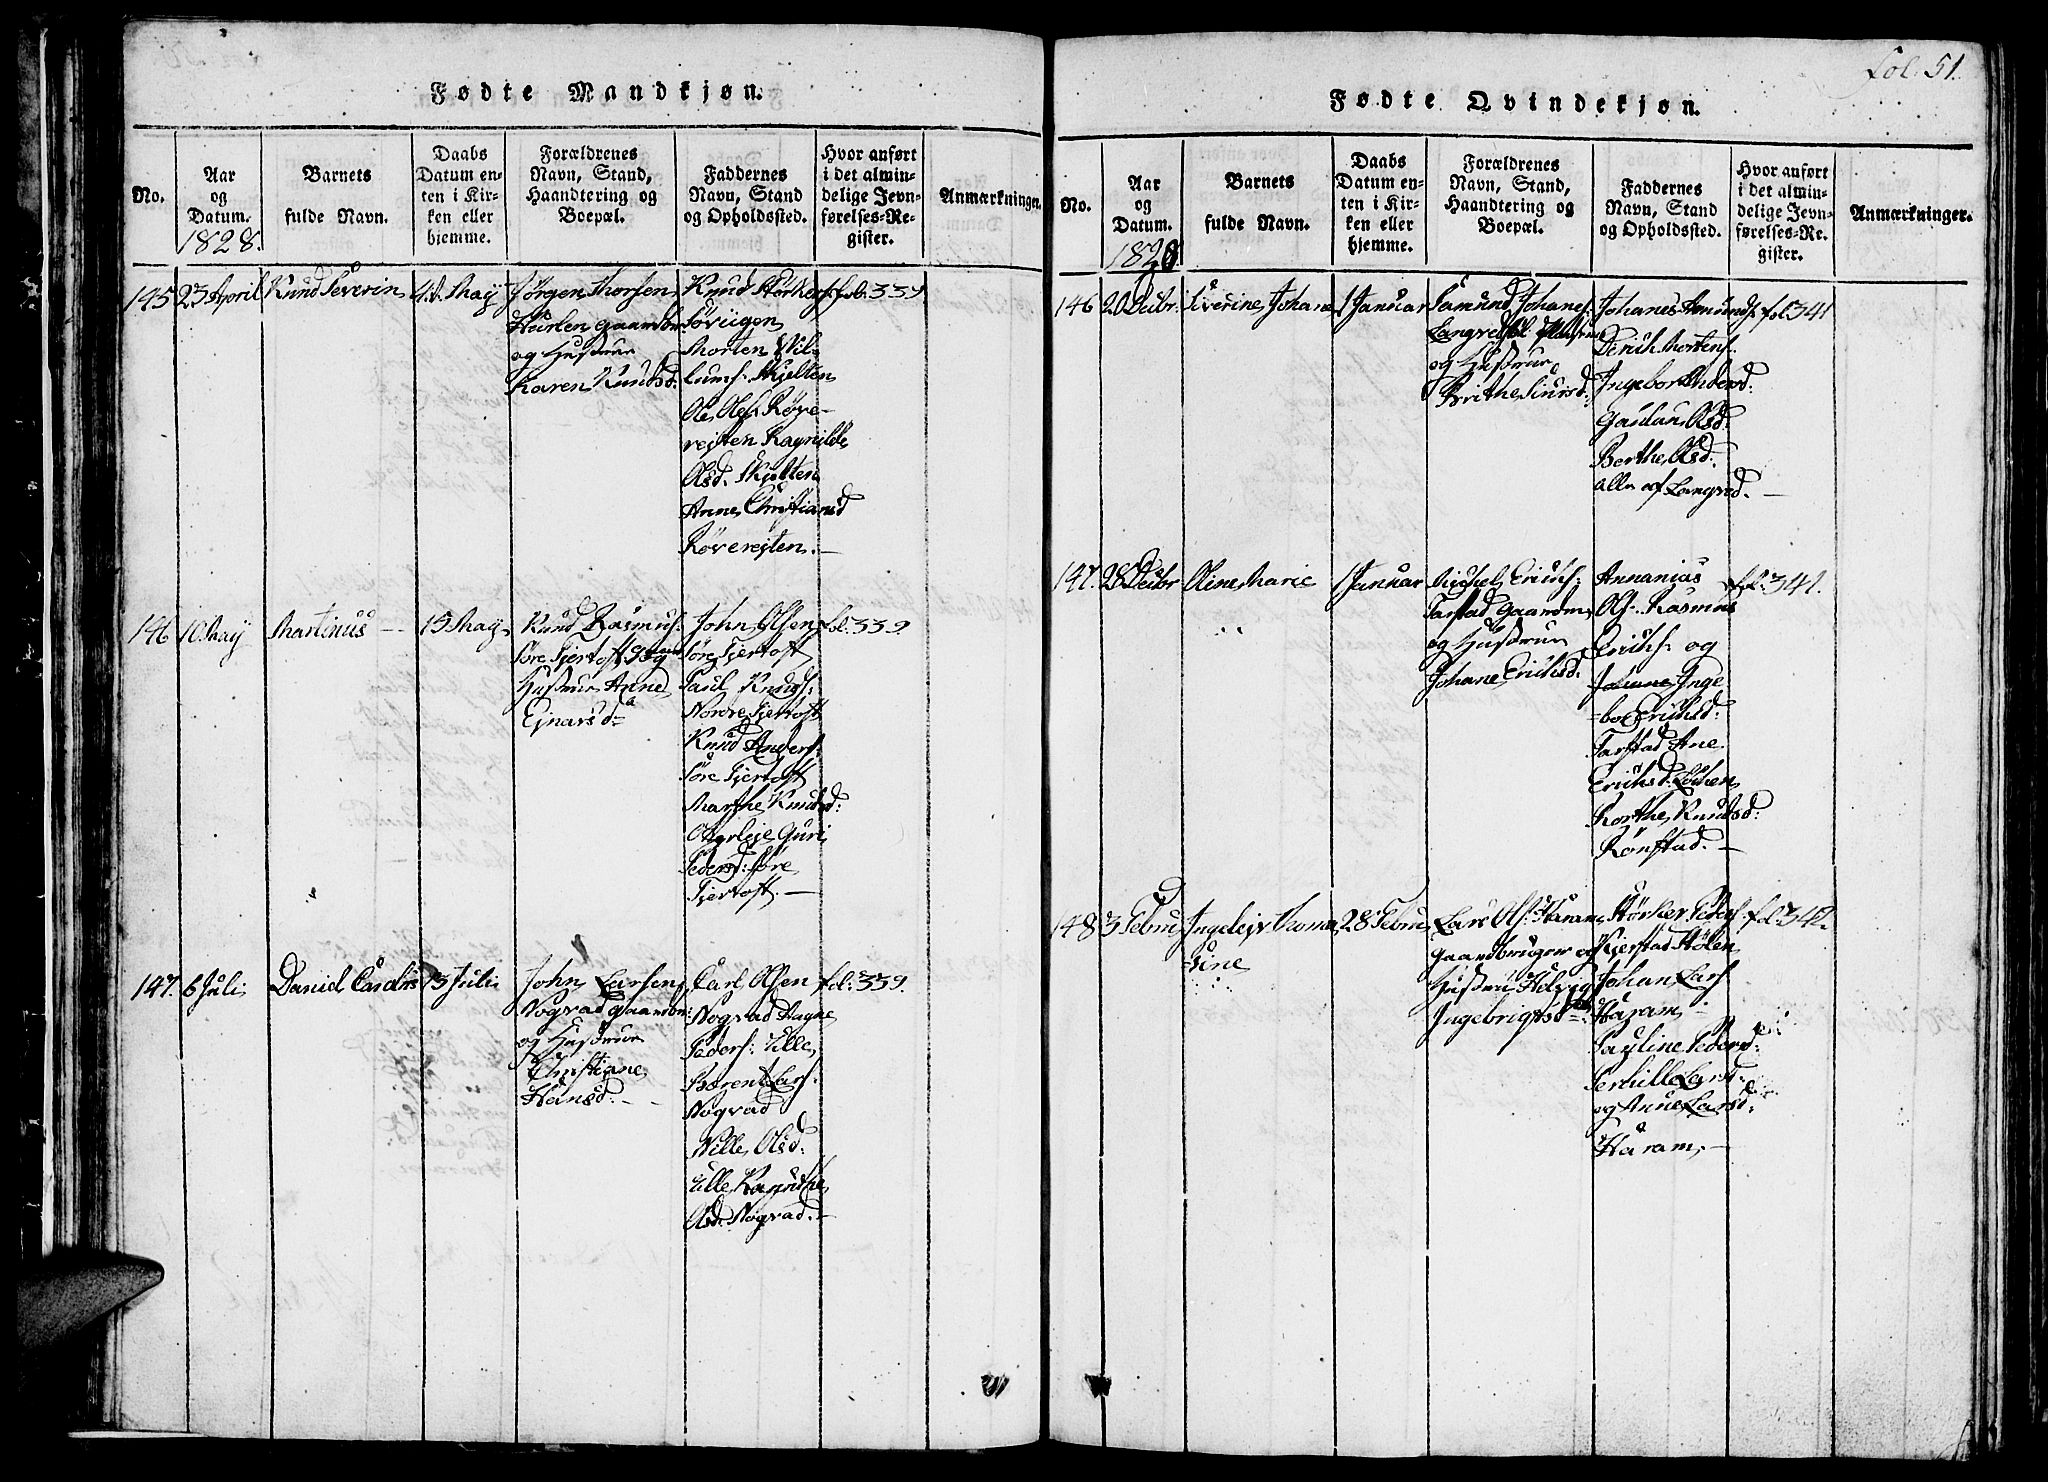 fol. 51.
Fødte Mandkjøn.
No.
Aar
og
Datum.
1828.
Barnets
fulde Navn.
Daabs
Datum en-
ten i Kir-
ken eller
hjemme.
Forældrenes
Navn, Stand,
Haandtering og
Boepæl.
Faddernes
Navn, Stand
og Opholdssted.
Hvor anført
i det almin-
delige Jevn-
førelses-Re-
gister.
Anmærkninger.
145
23 April
Knud Severin
4d May
Jørgen Thorsen
og Hustrue
Karen Knudsd:
Knud Størkers:
Søviigen
Morten Wil-
lums: Skjelten
Ole Ols: Røve-
rejten Ragnilde
Olsd. Skjelten
Anne Christiansd
Røverejten. —
fol: 339
146
10. May
Martinus —
15 May
Knud Rasmus:
Søre Fjertoft
Hustrue Anne
Ejnarsd
John Olsen
Søre Fjertoft
Paul Knuds:
Nordre Fjertoft
Knud Anders:
Søre Fjertoft
Marthe Knudsd:
Guri
Pedersd: Søre
Fjertoft. —
fol: 339.
147.
6 Juli
Daniel Carolus
13 Juli
John Larsen
Nogvad gaardbr:
og Hustrue
Christiane
Hansd. —
Carl Olsen
Nogvad Hagne
Peders: Ulle
Berent Lars:
Nogvad
Nille Olsd:
Ulle
Olsd. Nogvad. —
fol: 339.
Fødte Qvindekjøn.
No.
Aar
og
Datum.
1828
Barnets
fulde Navn.
Daabs
Datum en-
ten i Kir-
ken eller
hjemme.
Forældrenes
Navn, Stand,
Haandtering og
Boepæl.
Faddernes
Navn, Stand
og Opholdssted.
Hvor anført
i det almin-
delige Jevn-
førelses-Re-
gister.
Anmærkninger.
146
20 Decbr.
Siverine Johane
1 Januar
Samund Johanes:
og Hustrue
Brithe Siursd:
Johanes Amunds:
Derich Mortens:
Ingebor Andersd:
Olsd:
Berthe Olsd:
alle af Langvd. —
fol: 341
147.
28 Decbr
Oline Marie
1 Januar
Michel Erichs:
Farstad Gaardm
og Hustrue
Johane Erichsd.
Annanias
Ols: Rasmus
Erichs: og
Inge
-bor Erichsd:
Farstad Ane
Erichsd:
Berthe Knudsd:
Rønstad. —
fol: 341.
148
3 Febru
Ingeleiv Thoma
sine
28 Febru
Lars Ols: Haram
gaardbruger og
Hustrue Helvig
Ingebrigtsd
Størker Peders:
Kjerstad Stølen
Johan Lars:
Haram
Pauline Pedersd:
Pernille Larsd:
og Anne Larsd:
Haram. —
fol: 342.